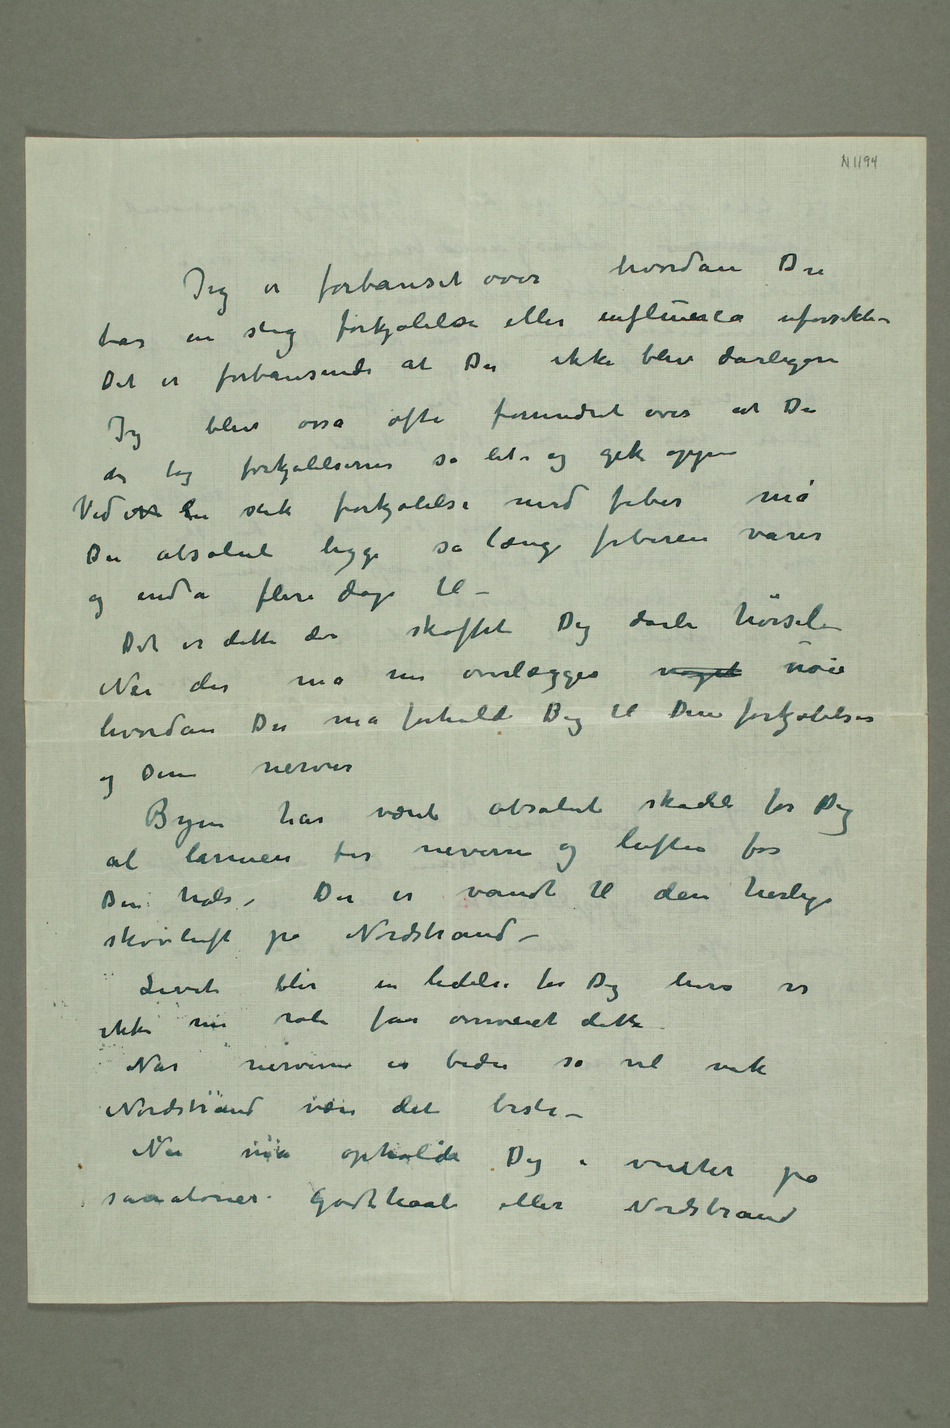 N 1194
Jeg er forbauset over hvordan Du
tar en slig forkjølelse eller influensa uforsikti–
Det er forbausende at Du ikke blev dårligere
Jeg blev osså ofte forundret over at Du
da tog forkjølelserne så let og gik oppe
Ved en slik forkjølelse med feber må
Du absolut ligge så længe feberen varer
og endå flere dage til –
Det er dette der skaffet Dig dårli hørsel –
Nu der må nu overlægges noget nøie
hvordan Du må forholde Dig til Dine forkjølelser
og Dine nerver
Byen har været absolut skadeli for Dig
al larmen for neverne og luften for
Din hals – Du er vandt til den herlige
skovluft på Nordstrand –
Livet blir en lidelse for Dig hvis vi
ikke nu rolig får overveiet dette
Når nerverne er bedre så vil nok
Nordstrand være det beste –
Nu må opholde Dig i vinter på
sanatorier Godthaab eller Nordstrand